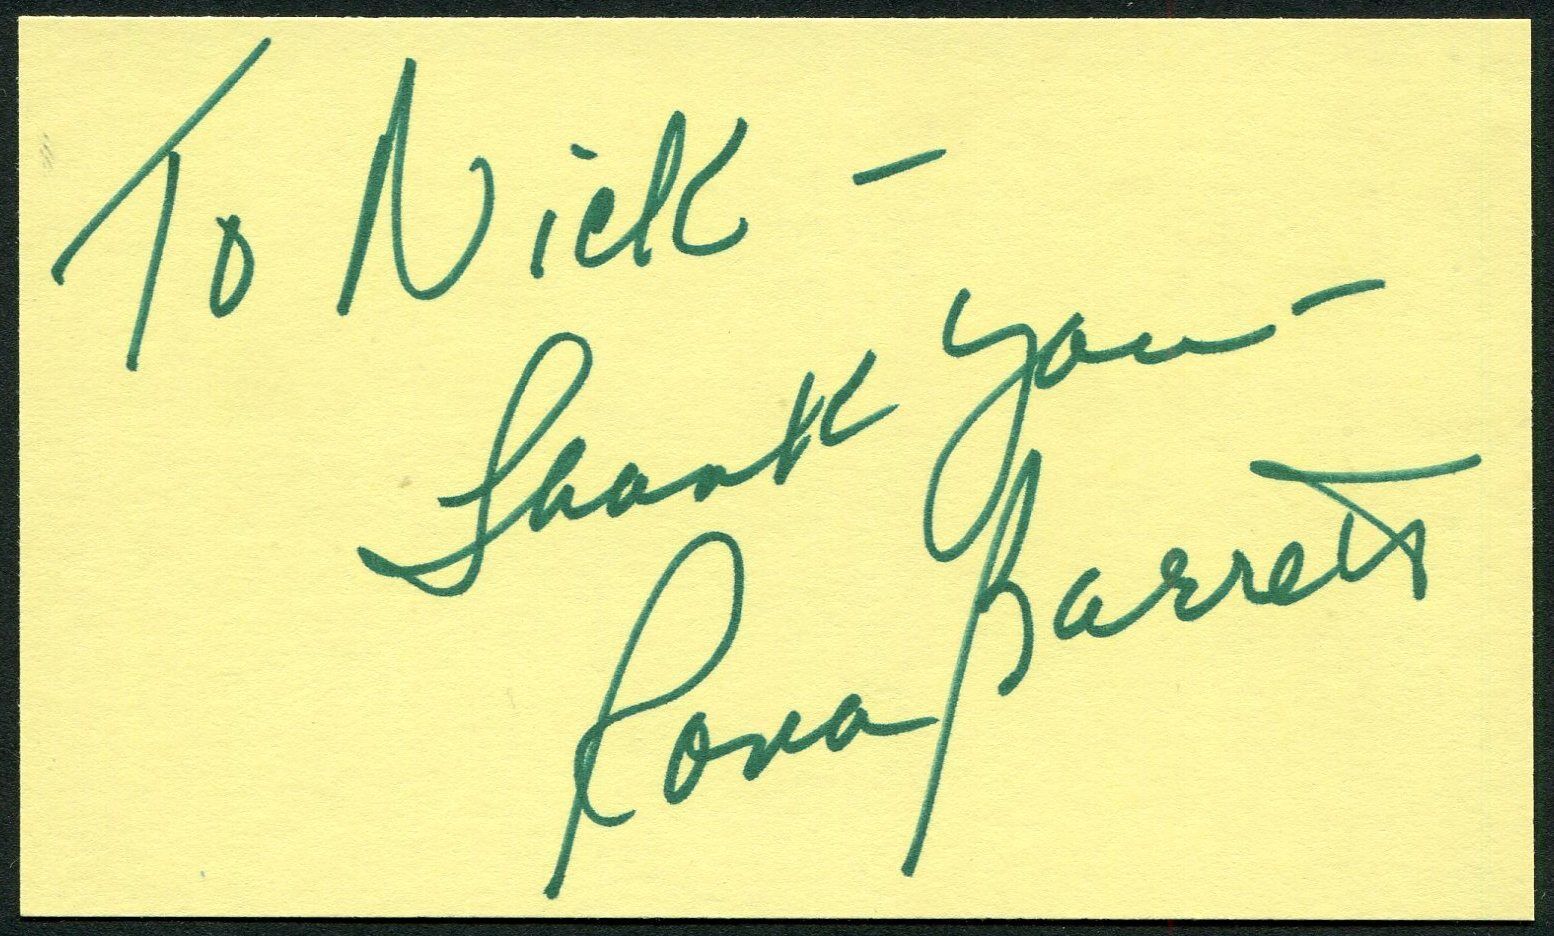 To Nick –
Thank you –
Rona Barrett